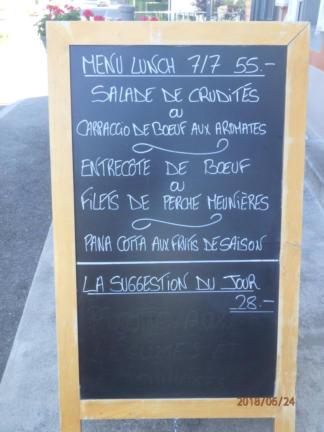 MENU LUNCH 7/7 55.-
SALADE DE CRUDITÉS
OU
CARPACCIO DE BOEUF AUX AROMATES
ENTRECÔTE DE BOEUF
OU
FILETS DE PERCHE MEUNIÈRES
PANA COTTA AUX FRUITS DE SAISON
LA SUGGESTION DU JOUR
28.-
2018/06/24